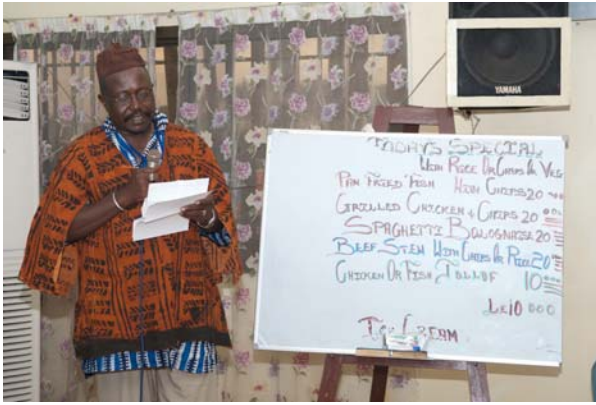 YAMAHA
TODAY'S SPECIAL
WITH RICE OR CHIPS OR VEG
PAN FRIED FISH WITH CHIPS 20
GRILLED CHICKEN + CHIPS 20 000
SPAGHETTI BOLOGNAISE 20
BEEF STEW WITH CHIPS OR RICE 20
CHICKEN OR FISH JOLLOF 10
LE10 000
ICE CREAM